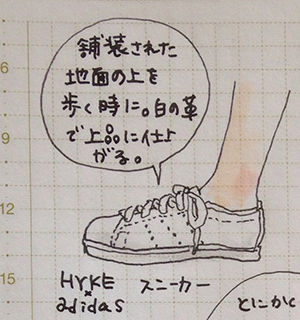 舗装された
地面の上を
歩く時に。白の革
で上品に仕上
がる。
6
9
12
15
HYKE
×
adidas
スニーカー
とにかく